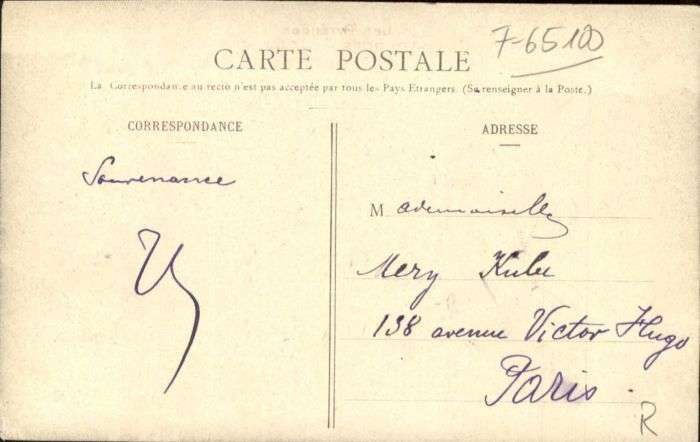 7-65100
CARTE POSTALE
La Correspondance au recto n'est pas acceptée par tous les Pays Etrangers. (Se renseigner à la Poste.)
CORRESPONDANCE
Souvenance
ADRESSE
Mademoiselle
Mery
138 avenue Victor Hugo
Paris
R